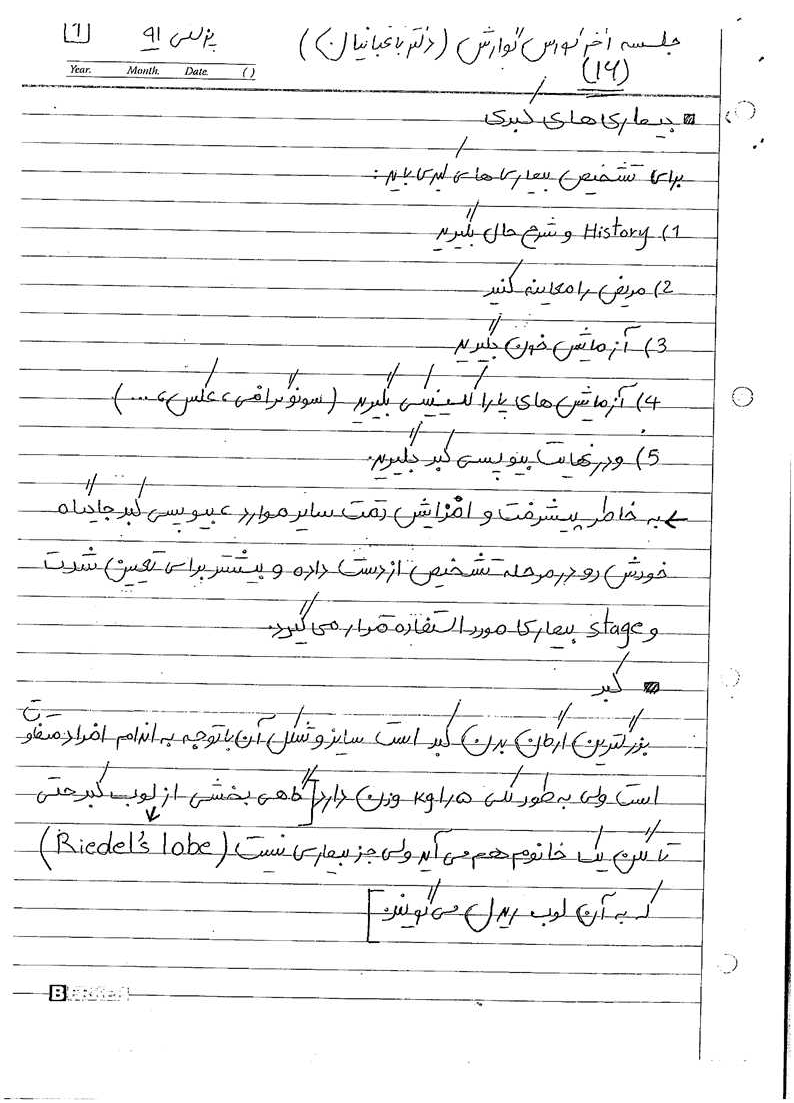 جلسه آخر کورس گوارش (دکتر باغبانیان) پزشکی ۹۱ [1]
(۱۴)
Year. Month. Date. ( )
بیماری‌های کبدی
برای تشخیص بیماری‌های کبدی باید:
1) History و شرح حال بگیرید
2) مریض را معاینه کنید
3) آزمایش خون بگیرید
4) آزمایش های پاراکلینیکی بگیرید (سونوگرافی، عکس، ...)
5) و در نهایت بیوپسی کبد بگیرید.
← به خاطر پیشرفت و افزایش دقت سایر موارد، بیوپسی کبد جایگاه
خودش رو در مرحله تشخیص از دست داده و بیشتر برای تعیین شدت
و stage بیماری‌ها مورد استفاده قرار می گیرد.
کبد
بزرگترین ارگان بدن کبد است سایز و شکل آن با توجه به اندام افراد متفاوت
است ولی به طور کلی ۱٫۵ kg وزن دارد [گاهی بخشی از لوب کبد حتی
تا لگن یک خانوم هم می آید ولی جز بیماری نیست (Riedel's lobe)
که به آن لوب ریدل می گویند.]